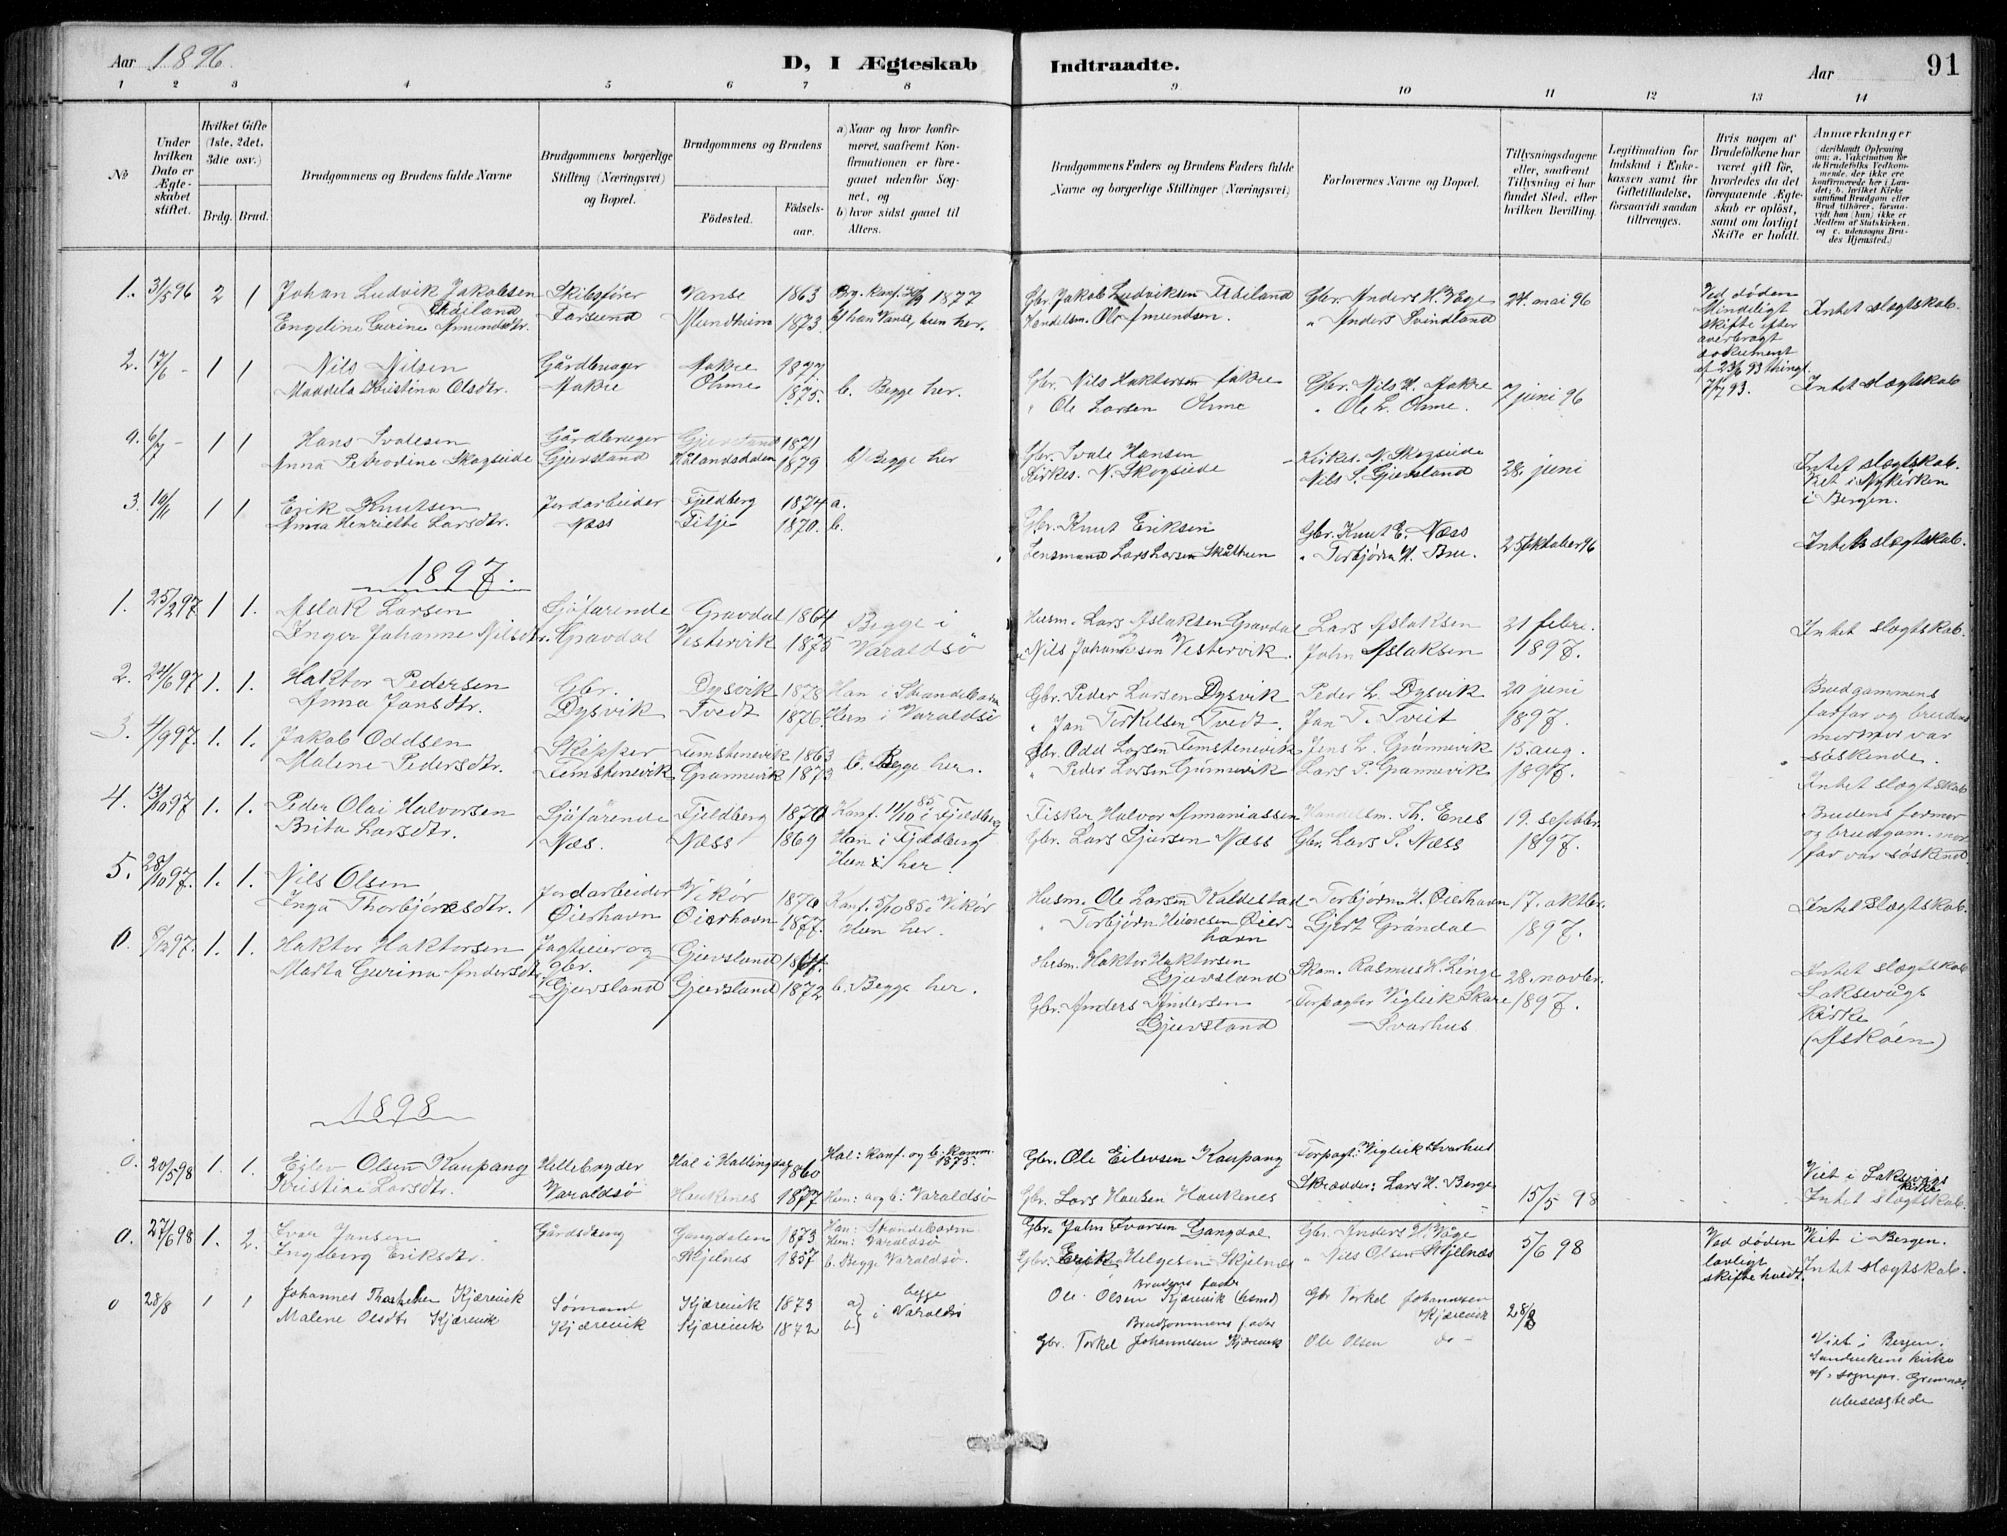 Aar 1896.
D, I Ægteskab Indtraadte.
Aar
91
1 2 3 4 5 6 7 8 9 10 11 12 13 14
No
Under hvilken Dato er Ægteskabet stiftet.
Hvilket Gifte (1ste, 2det, 3die osv.)
Brdg. Brud.
Brudgommens og Brudens fulde Navne
Brudgommens borgerlige Stilling (Næringsvei) og Bopæl.
Brudgommens og Brudens
Födested. Födsels-aar.
a) Naar og hvor konfirmeret, saafremt Konfirmationen er foregaaet udenfor Sognet, og
b) hvor sidst gaaet til Alters.
Brudgommens Faders og Brudens Faders fulde Navne og borgerlige Stillinger (Næringsvei)
Forlovernes Navne og Bopæl.
Tillysningsdagene eller, saafremt Tillysning ei har fundet Sted, efter hvilken Bevilling.
Legitimation for Indskud i Enkekassen samt for Giftetilladelse, forsaavidt saadan tiltrænges.
Hvis nogen af Brudefolkene har været gift för, hvorledes da det foregaaende Ægteskab er oplöst, samt om lovligt Skifte er holdt.
Anmærkninger (deriblandt Oplysning om: a. Vakcination for de Brudefolks Vedkommende, der ikke ere konfirmerede her i Landet; b. hvilket Kirkesamfund Brudgom eller Brud tilhörer, forsaavidt han (hun) ikke er Medlem af Statskirken, og c. udensogns Brudes Hjemsted.)
1. 31/5 96 2 1 Johan Ludvik Jakobsen Skibsfører Vanse 1863 Brg. konf. 1877 Gbr. Jakob Ludviksen Gbr. Anders H. Våge 24. mai 96 Ved døden Intet slægtskab.
Engeline Gurine Amundsdtr. Farsund Mundheim 1873 b) han Vanse, hun her. Handelsm. Ole Amundsen. " Anders Svindland Mindeligt skifte efter averbragt dokument af 23/6 93 thingl. 7/7 93.
2. 17/6 - 1 1 Nils Nilsen Gårdbruger Makre 1877 Gbr. Nils Haktorsen Gbr. Nils H. Makre 7 juni 96 Intet slægtskab
Maddela Kristina Olsdtr. Makre Ohme 1875. b. Begge her. " Ole Larsen Ohme " Ole L. Ohme.
0. 6/7 - 1 1 Hans Svalesen Gårdbruger Gjersland 1871 Gbr. Svale Hansen Kirkes. N. Skogseide 28. juni Intet slægtskab.
Anna Petrodine Skogseide Gjersland Hålandsdalen 1879 b) Begge her Kirkes. N. Skogseide Nils S. Gjersland Viet i Nykirken i Bergen.
3. 10/11 1 1 Erik Knutsen Jordarbeider Fjeldberg 1874 a. Gbr. Knut Eriksen Gbr. Knut E. Næss 25 oktober 96 Intet slægtskab.
Anna Henriette Larsdtr. Næss Fitje 1870. b. Lensmand Lars Larsen Skålheim " Torbjørn H. Bru.
1897.
1. 25/2 97 1 1. Aslak Larsen Sjøfarende Gravdal 1864 Begge i Husm. Lars Aslaksen Gravdal Lars Aslaksen 21 febr. Intet slægtskab.
Inger Johanne Nilsdtr. Gravdal Vestervik 1875 Varaldsö " Nils Johannesen Vestervik. John Aslaksen 1897.
2. 24/6 97 1. 1. Haktor Pedersen Gbr. Dysvik 1873 Han i Strandebarm Gbr. Peder Larsen Dysvik Peder L. Dysvik 20 juni Brudgommens
Anna Jansdtr. Dysvik Tvedt 1876. Hun i Varaldsö " Jan Torkelsen Tvedt. Jan T. Tveit 1897. farfar og brudens mormor var søskende.
3. 4/9 97. 1. 1. Jakob Oddsen Skipper Femstenevik 1863 Gbr. Odd Larsen Femstenevik Jens L. Grønnevik 15. aug. Intet slægtskab
Malene Pedersdtr. Femstenevik Grønnevik 1873 b. Begge her. " Peder Larsen Grønnevik Lars P. Grønnevik 1897.
4. 13/10 97 1. 1. Peder Olai Halvorsen Sjøfarende Fjeldberg 1870 Konf. 11/10 85 i Fjeldberg Fisker Halvor Annaniassen Handelsm. Th. Enes 19. septbr. Brudens farmor
Brita Larsdtr. Næs. Næss 1869 Han i Fjeldberg Hun i her. Gbr. Lars Sjursen Næss Gbr. Lars S. Næss 1897. og brudgom. morfar var søskend
5. 28/10 97. 1. 1. Nils Olsen Jordarbeider Vikør 1870 Konf. 5/10 85 i Vikør Husm. Ole Larsen Kaldestad Torbjørn H. Øierhavn 17. oktbr. Intet slægtskab.
Inga Thorbjørnsdtr. Øierhavn Øierhavn 1877. Hun her. " Torbjørn Heinesen Øierhavn Gjert Grøndal 1897.
0. 8/12 97. 1. 1. Haktor Haktorsen Jagtieier og Gjersland Husm. Haktor Haktorsen Gjersland Skom. Rasmus H. Linge 28. novbr. Intet slægtskab
Marta Gurina Andersdtr. gbr. Gjersland Gjersland 1872 b. Begge her. Gbr. Anders Andersen Gjersland Torpagter Vigleik Skare Svarhus 1897. Laksevågs kirke (Askøen)
1898
0. 20/5 98 1. 1. Eilev Olsen Kaupang Hellebryder Hol i Hallingdal 1860 Hol: konf. og b. komm. 1875. Gbr. Ole Eilevsen Kaupang Torpagt: Vigleik Svarhus Viet i Laksevågs kirke
Kristine Larsdtr. Varaldsö Haukenes 1877 Hun: a og b: Varaldsö Gbr. Lars Hansen Haukenes Skrædder: Lars H. Berge 15/5 98 Intet slægtskab.
0. 27/6 98 1. 2. Ivar Jansen Gårdsdreng Gangdalen 1873 Han: Strandebarm Gbr. John Ivarsen Gangdal Gbr. Anders H. Våge 5/6 98 Ved døden Viet i Bergen.
Ingeborg Eriksdtr. Skjelnes 1857 Hun: Varaldsö b. Begge Varaldsö. Gbr. Erik Helgesen Skjelnes " Nils Olsen Skjelnæs lovligt skifte holdt. Intet slægtskab.
0 28/8 1 1 Johannes Kjærevik Sømand Kjærevik 1873 a) begge Brudens fader Ole Olsen Kjærevik Gbr Torkel Johannesen Kjærevik 28/8
Malene Olsdtr Kjærevik Kjærevik Kjærevik 1872 b) i Varaldsö Brudgommens fader Gbr. Torkel Johannesen Kjærevik Ole Olsen do - Viet i Bergen i Sandvikens kirke af sognepr. ubeslægtede